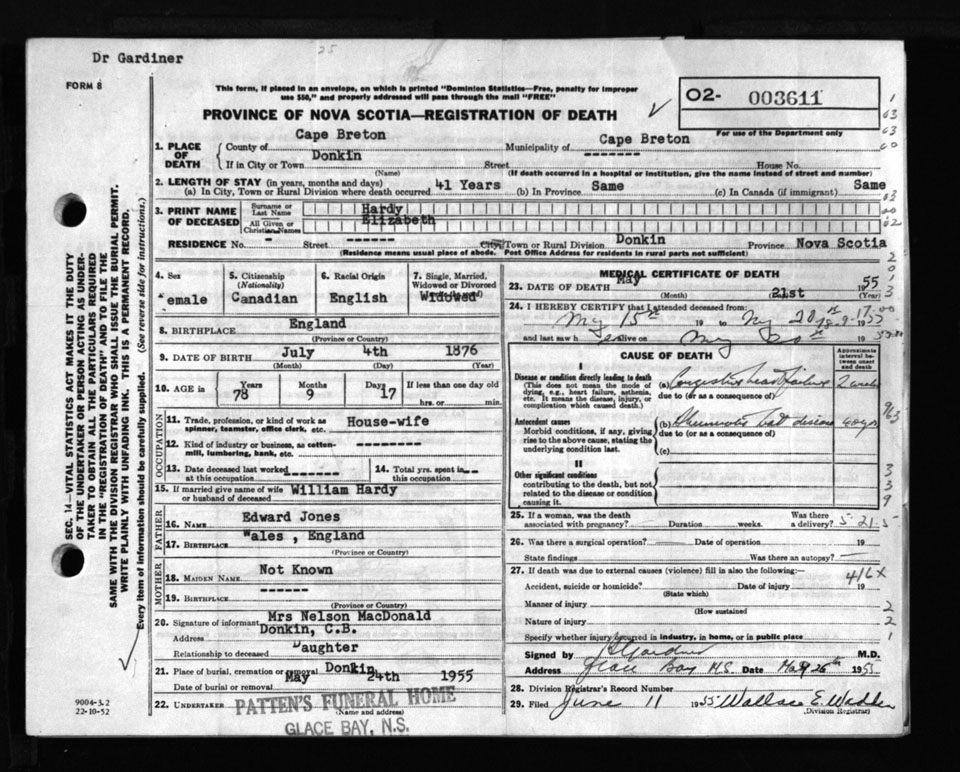 Dr Gardiner
25
FORM 8
This form, if placed in an envelope, on which is printed "Dominion Statistics—Free, penalty for improper
use $50," and properly addressed will pass through the mail "FREE"
PROVINCE OF NOVA SCOTIA—REGISTRATION OF DEATH
O2- 003611
For use of the Department only
1. PLACE OF DEATH
County of Cape Breton Municipality of Cape Breton
If in City or Town Donkin Street ------- House No.
(Name) (If death occurred in a hospital or institution, give the name instead of street and number)
2. LENGTH OF STAY (in years, months and days)
(a) In City, Town or Rural Division where death occurred 41 Years (b) In Province Same (c) In Canada (if immigrant) Same
3. PRINT NAME OF DECEASED
Surname or Last Name Hardy
All Given or Christian Names Elizabeth
RESIDENCE No. - Street ------ City, Town or Rural Division Donkin Province Nova Scotia
(Residence means usual place of abode. Post Office Address for residents in rural parts not sufficient)
4. Sex emale
5. Citizenship (Nationality) Canadian
6. Racial Origin English
7. Single, Married, Widowed or Divorced Widowed
8. BIRTHPLACE England
(Province or Country)
9. DATE OF BIRTH July 4th 1876
(Month) (Day) (Year)
10. AGE in Years 78 Months 9 Days 17 If less than one day old
hrs. or min.
OCCUPATION
11. Trade, profession, or kind of work as spinner, teamster, office clerk, etc. House-wife
12. Kind of industry or business, as cotton-mill, lumbering, bank, etc. ----------
13. Date deceased last worked at this occupation --------- 14. Total yrs. spent in this occupation --
15. If married give name of wife or husband of deceased William Hardy
FATHER
16. NAME Edward Jones
17. BIRTHPLACE "ales , England
(Province or Country)
MOTHER
18. MAIDEN NAME Not Known
19. BIRTHPLACE ------
(Province or Country)
20. Signature of informant Mrs Nelson MacDonald
Address Donkin, C.B.
Relationship to deceased Daughter
21. Place of burial, cremation or removal Donkin
Date of burial or removal May 24th 1955
22. UNDERTAKER PATTEN'S FUNERAL HOME
(Name and address)
GLACE BAY, N.S.
9004-3.2
22-10-52
SEC. 14—VITAL STATISTICS ACT MAKES IT THE DUTY
OF THE UNDERTAKER OR PERSON ACTING AS UNDER-
TAKER TO OBTAIN ALL THE PARTICULARS REQUIRED
IN THE "REGISTRATION OF DEATH" AND TO FILE THE
SAME WITH THE DIVISION REGISTRAR WHO SHALL ISSUE THE BURIAL PERMIT.
WRITE PLAINLY WITH UNFADING INK. THIS IS A PERMANENT RECORD.
Every item of information should be carefully supplied. (See reverse side for instructions.)
MEDICAL CERTIFICATE OF DEATH
23. DATE OF DEATH May 21st 1955
(Month) (Year)
24. I HEREBY CERTIFY that I attended deceased from:
My 15th 19 to My 20
and last saw h er alive on My 20th 19
CAUSE OF DEATH
Approximate interval between onset and death
I
Disease or condition directly leading to death
(This does not mean the mode of dying, e.g., heart failure, asthenia, etc. It means the disease, injury, or complication which caused death.)
(a) Congestive heart failure 2 weeks
due to (or as a consequence of)
Antecedent causes
Morbid conditions, if any, giving rise to the above cause, stating the underlying condition last.
(b) Rheumatic heart disease 40 yrs
due to (or as a consequence of)
(c)
II
Other significant conditions
contributing to the death, but not related to the disease or condition causing it.
25. If a woman, was the death associated with pregnancy? Duration weeks. Was there a delivery? 5-21-5
26. Was there a surgical operation? Date of operation 19
State findings Was there an autopsy?
27. If death was due to external causes (violence) fill in also the following:—
416X
Accident, suicide or homicide? Date of injury 19
(State which)
Manner of injury
(How sustained)
Nature of injury
Specify whether injury occurred in industry, in home, or in public place
Signed by Gardiner M.D.
Address Glace Bay N.S. Date May 26th 1955
28. Division Registrar's Record Number
29. Filed June 11 1955 Wallace E.
(Division Registrar)